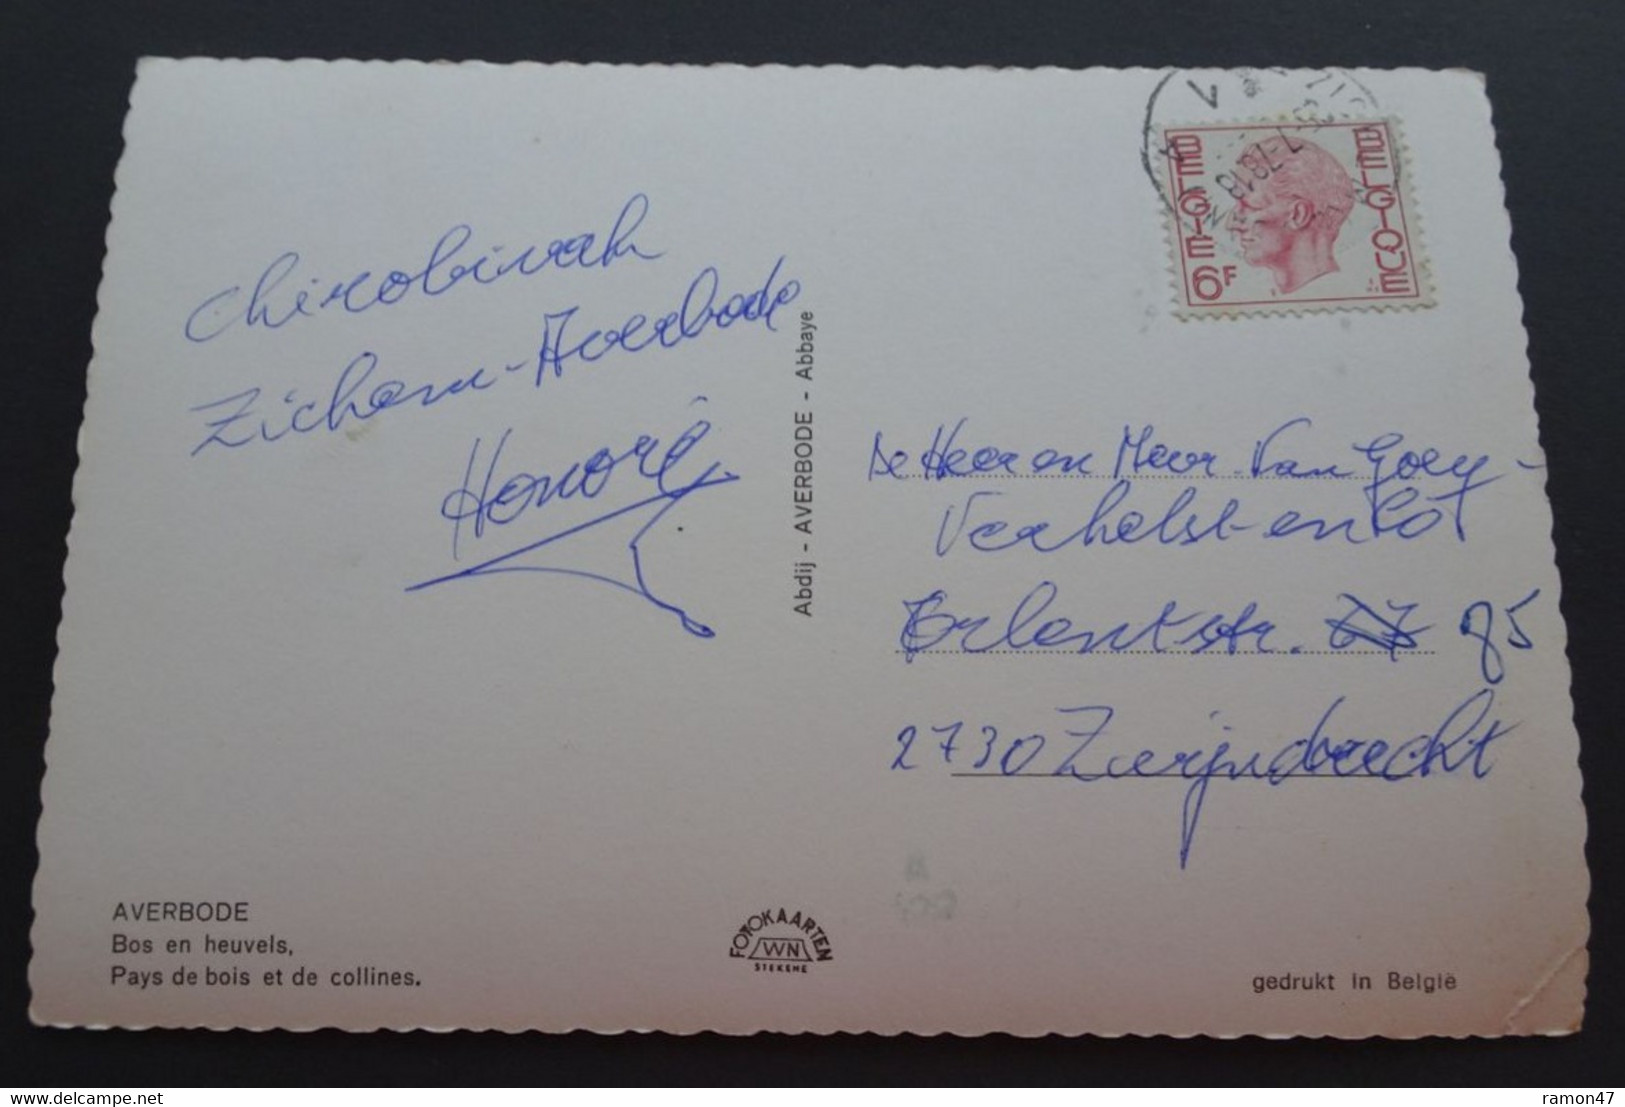 Chirobivak
Zichem-Averbode
Honoré
Abdij - AVERBODE - Abbaye
BELGIE
BELGIQUE
6F
De Heer en Mevr. Van Goey-
Verhelst-en Co
str. 85
2730 Zwijndrecht
AVERBODE
Bos en heuvels,
Pays de bois et de collines.
FOTOKAARTEN
WN
STEKENE
gedrukt in België
delcampe.net
ramon47